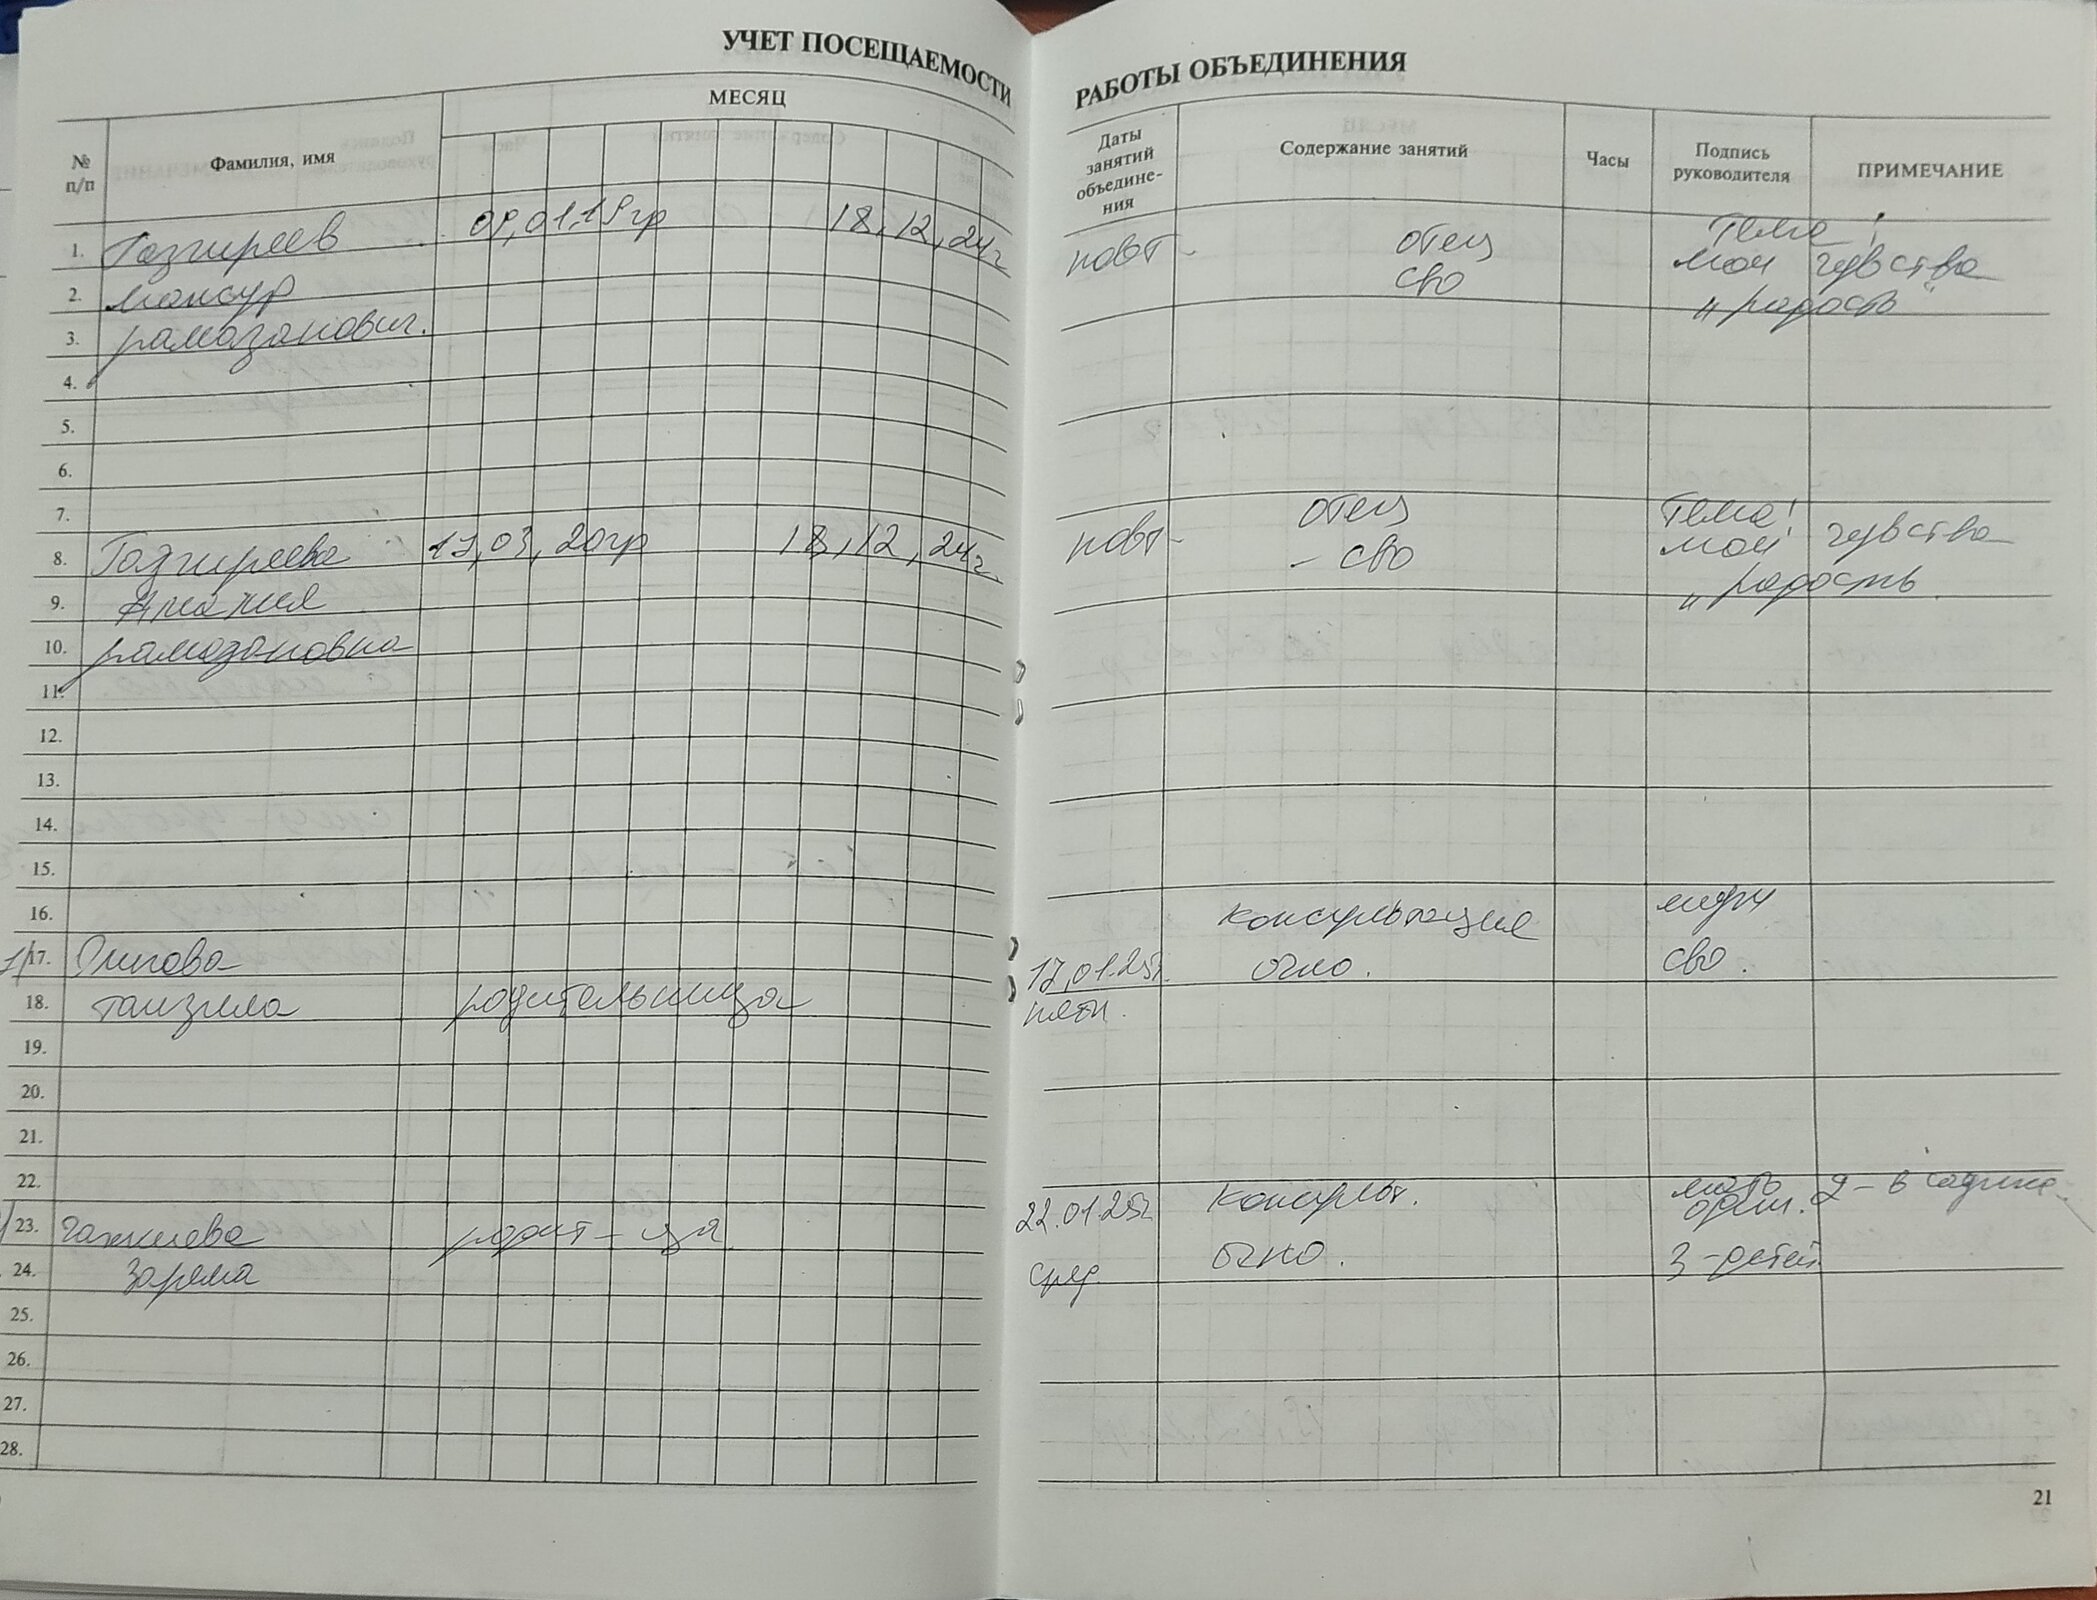 УЧЕТ ПОСЕЩАЕМОСТИ
№ п/п
Фамилия, имя
МЕСЯЦ
1. Газгиреев 09.01.19гр 18.12.24г
2. Мансур
3. рамазанович.
4.
5.
6.
7.
8. Газгиреева 03, 20гр 18.12.24г.
9. Амалия
10. рамазановна
11.
12.
13.
14.
15.
16.
1/ 17.
18. танзила родительница
19.
20.
21.
22.
23. родит-ца
24. Зарема
25.
26.
27.
28.
РАБОТЫ ОБЪЕДИНЕНИЯ
Даты занятий объедине-ния
Содержание занятий
Часы
Подпись руководителя
ПРИМЕЧАНИЕ
повт- отец Тема!
сво мои чувства
"радость"
повт- отец Тема!
- сво мои чувства
"радость.
консультация
17.01.25г. очно. сво.
пятн.
22.01.25г. консульт. мать 2-в садике
сред. очно. 3-детей
21